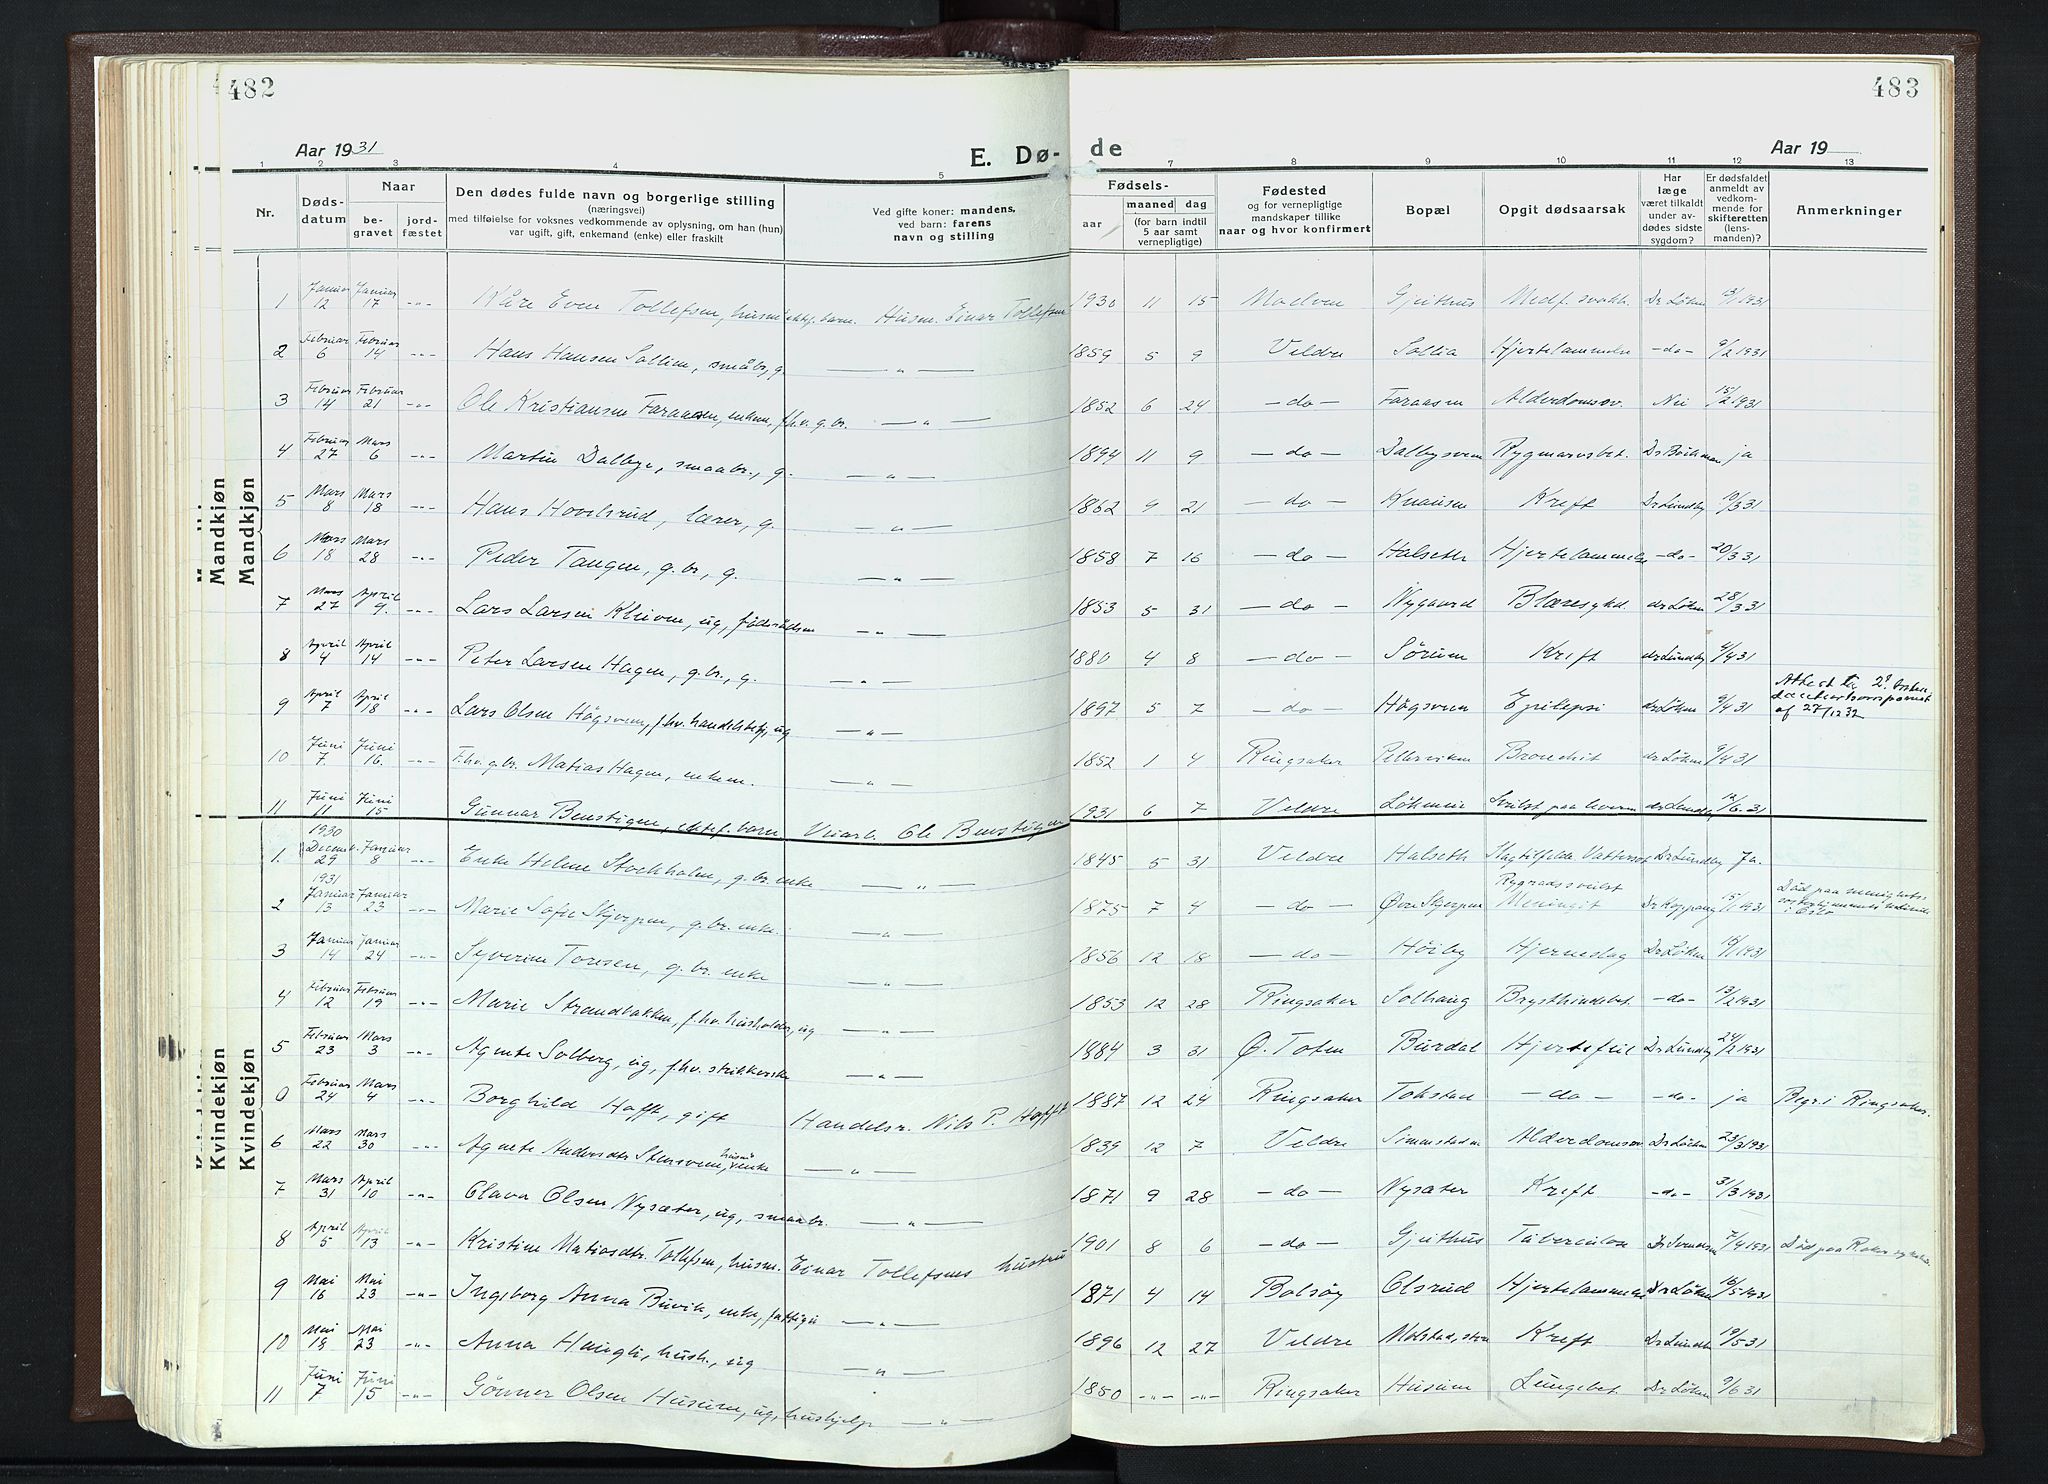 482
483
Aar 1931
E. Dø-de
Aar 19
1 2 3 4 5 7 8 9 10 11 12 13
Nr.
Døds-datum
Naar
be-gravet
jord-fæstet
Den dødes fulde navn og borgerlige stilling
(næringsvei)
med tilføielse for voksnes vedkommende av oplysning, om han (hun)
var ugift, gift, enkemand (enke) eller fraskilt
Ved gifte koner: mandens,
ved barn: farens
navn og stilling
Fødsels-
aar
maaned dag
(for barn indtil
5 aar samt
vernepligtige)
Fødested
og for vernepligtige
mandskaper tillike
naar og hvor konfirmert
Bopæl
Opgit dødsaarsak
Har
læge
været tilkaldt
under av-
dødes sidste
sygdom?
Er dødsfaldet
anmeldt av
vedkom-
mende for
skifteretten
(lens-
manden)?
Anmerkninger
Mandkjøn
Mandkjøn
1 Januar 12 Januar 17 -"- Kåre Even Tollefsen, husm. ektef. barn. Husm. Einar Tollefsen 1930 11 15 Moelven Gjeithus Medf. svakh. Dr Løken 13/1 1931
2 Februar 6 Februar 14 -"- Hans Hansen Sollien, småbr, g. — " — 1859 5 9 Veldre Sollia Hjertelammelse -do- 9/2 1931
3 Februar 14 Februar 21 -"- Ole Kristiansen Faraasen, enkem, f.h.v. g.br. — " — 1852 6 24 -do- Faraasen Alderdomssv. Nei 15/2 1931
4 Februar 27 Mars 6 -"- Martin Dalbye, smaabr., g. — " — 1894 11 9 -do- Dalbysveen Rygmarvsbet. ja
5 Mars 8 Mars 18 -"- Hans Hovelsrud, lærer, g. — " — 1862 9 21 -do- Knausen Kreft Dr Lundby 10/3 31
6 Mars 18 Mars 28 -"- Peder Tangen, g.br., g. — " — 1858 7 16 -do- Halseth Hjertelammelse -do- 20/3 31
7 Mars 27 April 9. -"- Lars Larsen Kleiven, ug, føderådsm — " — 1853 5 31 -do- Nygaard Blæresykd. dr Løken 28/3 31
8 April 4 April 14 -"- Peter Larsen Hagen, g.br., g. — " — 1880 4 8 -do- Sørum Kreft dr Lundby 9/4 31
9 April 7 April 18 -"- Lars Olsen Høgsveen, f.hv. handelsbetj, ug — " — 1897 5 7 -do- Høgsveen Epilepsi dr Løken 9/4 31 Attest af 27/12 32
10 Juni 7 Juni 16. -"- F.hv. g.br. Matias Hagen, enkem. — " — 1852 1 4 Ringsaker Pellerviken Bronchit dr Løken 9/4 31
11 Juni 11 Juni 15 -"- Gunnar Benstigen, ektef. barn Veiarb. Ole Benstigen 1931 6 7 Veldre Løkeneie Svulst paa leveren dr Lundby 12/6. 31
Kvindekjøn
Kvindekjøn
1. 1930 Decemb. 29 Januar 8 -"- Enke Helene Stockholm, g.br. enke — " — 1845 5 31 Veldre Halseth Slagtilfelde Vattersot Dr Lundby Ja.
2 1931 Januar 13 Januar 23 -"- Marie Sofie Skjerpen, g.br. enke. — " — 1875 7 4 -do- Øvre Skjerpen Rygradssvulst Meningit Dr Koppang 15/1 1931 Død paa menighets- i Oslo
3 Januar 14 Januar 24 -"- Syverine Toresen, g.br. enke — " — 1856 12 18 -do- Høiby Hjerneslag Dr Løken 16/1 1931
4 Februar 12 Februar 19 -"- Marie Strandbakken, f.hv. husholder, ug — " — 1853 12 28 Ringsaker Solhaug Brysthindebet. -do- 13/2 1931
5 Februar 23 Mars 3 -"- Agnete Solberg, ug, f.hv. strikkerske — " — 1884 3 31 Ø. Toten Burdal Hjertefeil Dr Lundby 24/2 1931
0 Februar 24 Mars 4 -"- Borghild Hafft, gift Handelsr. Nils P. Hafft 1887 12 24 Ringsaker Tokstad -do- -do- ja Begr. i Ringsaker.
6 Mars 22 Mars 30 -"- Agnete Andersdtr Stensveen, husm. enke — " — 1839 12 7 Veldre Simenstadm Alderdomssv Dr Løken 23/3 1931
7 Mars 31 April 10 -"- Olava Olsen Nysæter, ug, smaabr. — " — 1871 9 28 -do- Nysæter Kreft -do- 31/3 1931
8 April 5 April 13 -"- Kristine Matiasdtr. Tollefsen, husm. Einar Tollefsens hustru 1901 8 6 -do- Gjeithus Tuberculose 7/4 1931 Død paa
9 Mai 16 Mai 23 -"- Ingeborg Anna Buvik, enke, fattigu — " — 1871 4 14 Bolsøy Olsrud Hjertelammelse Dr Løken 16/5 1931
10 Mai 18 Mai 23 -"- Anna Haugli, hush., ug — " — 1896 12 27 Veldre Molstad, Kreft Dr Lundby 19/5 31
11 Juni 7 Juni 15 -"- Gønner Olsen Husum, ug, hushjelp — " — 1850 -"- -"- Ringsaker Husum Lungebet. Dr Løken 9/6 31